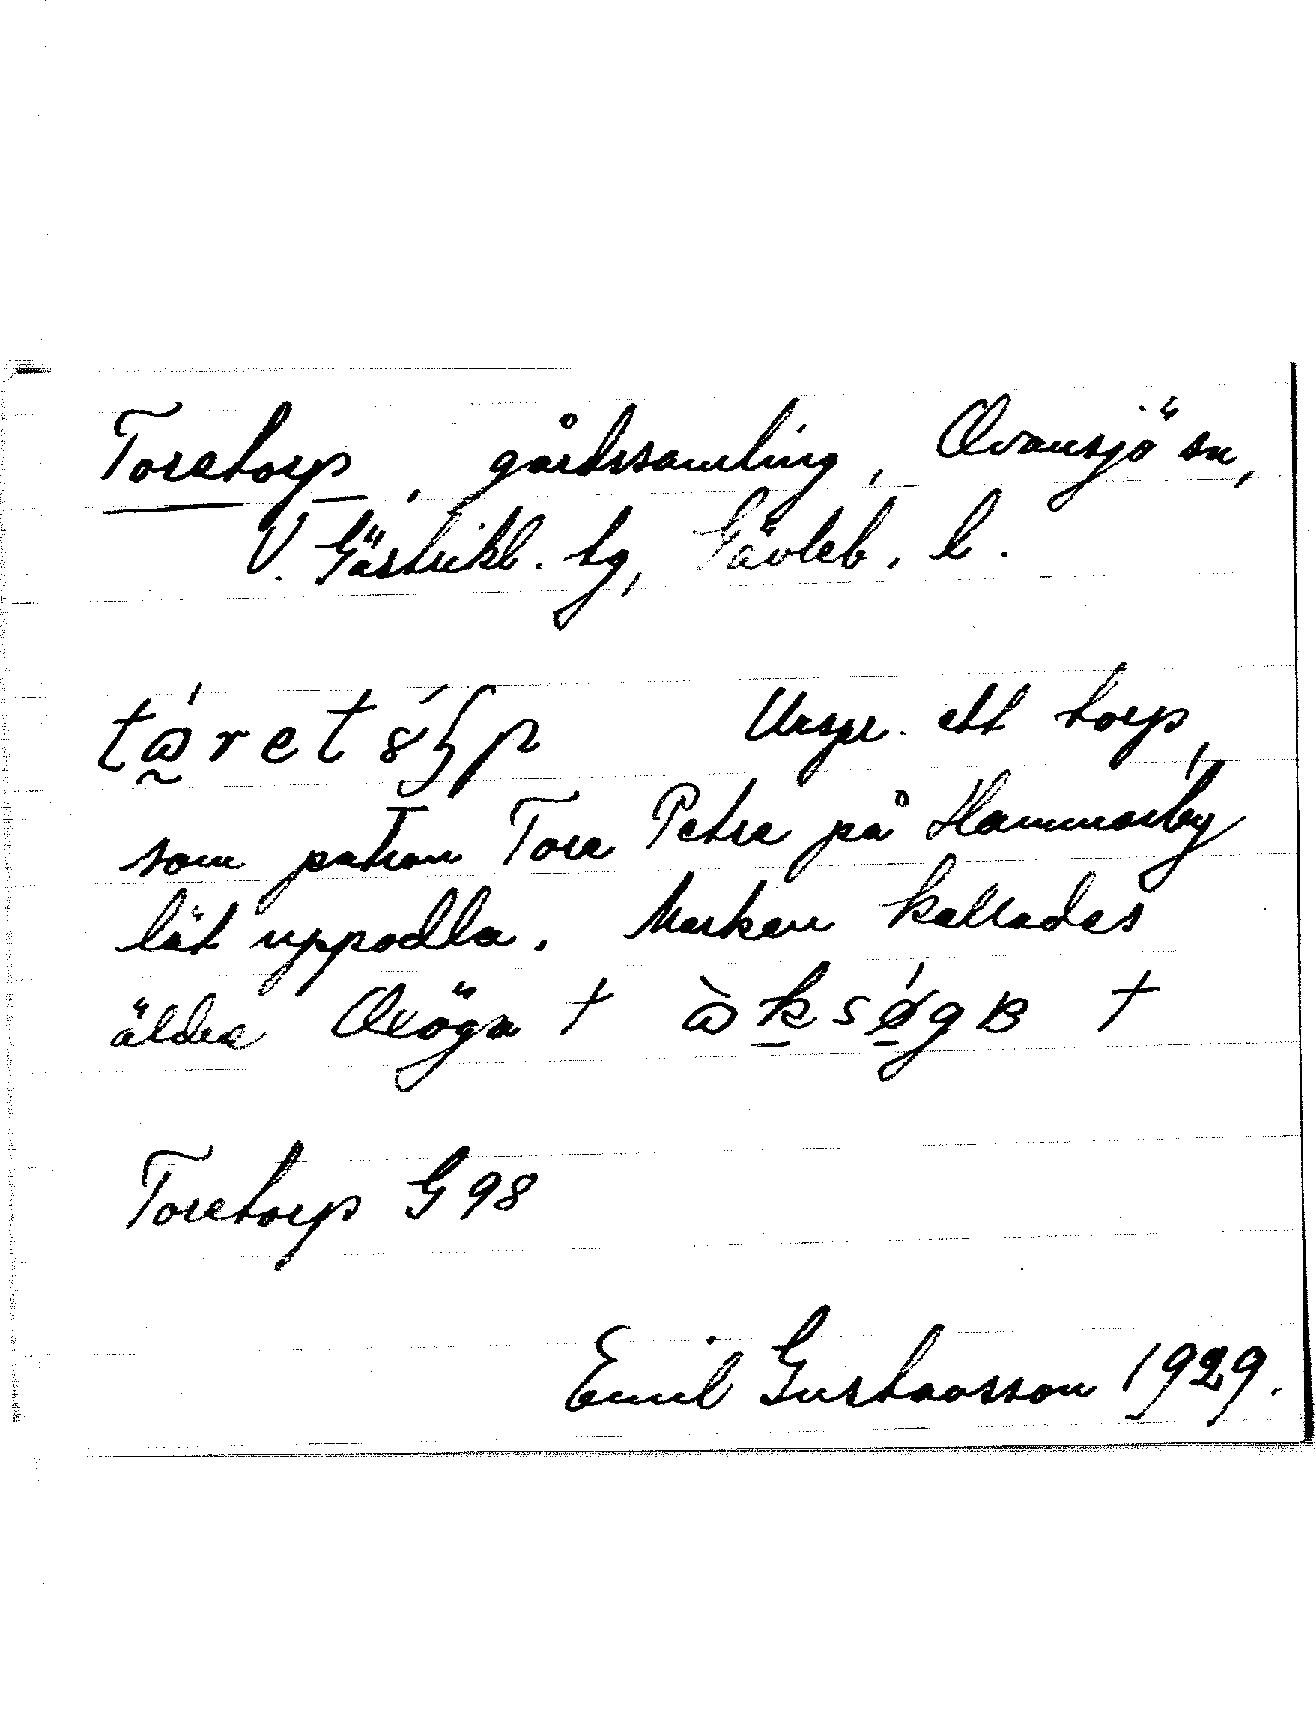 Toretorp, gårdssamling, Ovansjö sn,
V. Gästrikl. hg, Gävleb. l.
Urspr. ett torp,
som patron Tore Petre på Hammarby
lät uppodla. Marken kallades
äldre Oxöga †
†
Toretorp G 98
Emil Gustavsson 1929.